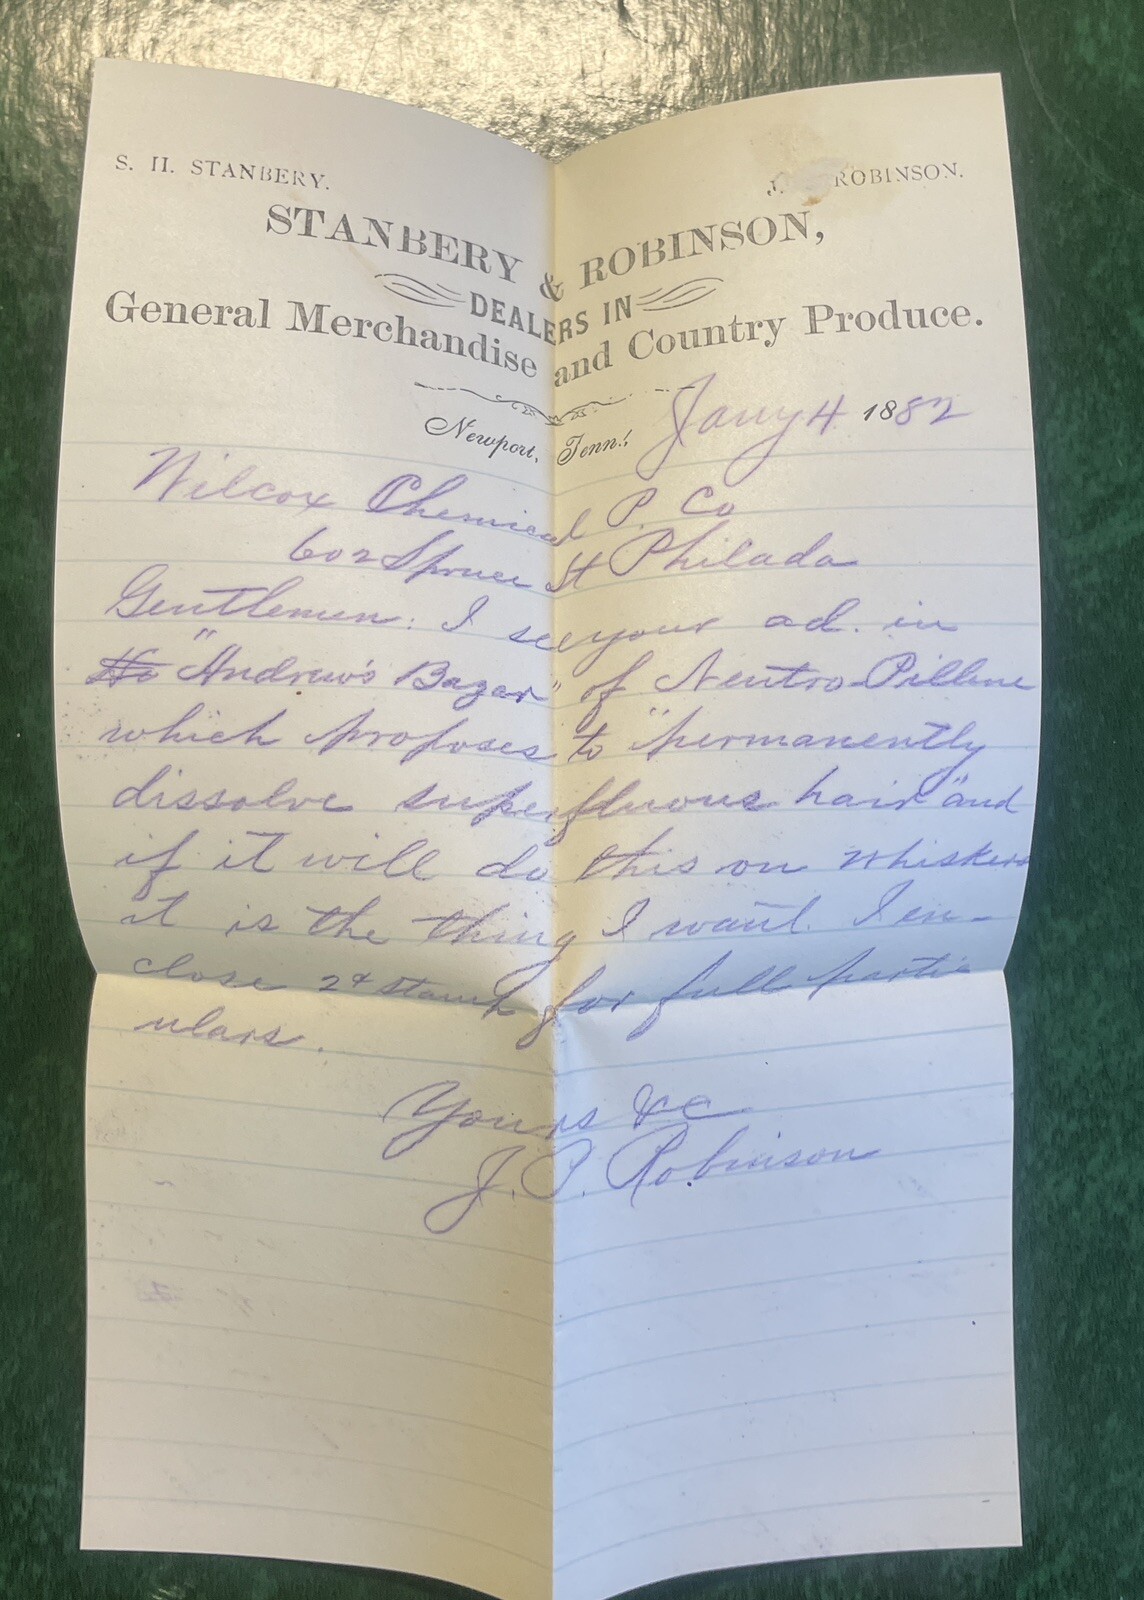 S. H. STANBERY.
J. ROBINSON.
STANBERY & ROBINSON,
DEALERS IN
General Merchandise and Country Produce.
Newport, Tenn., Jany 4 1882
Wilcox Chemical P. Co
602 Spruce St Philada
Gentlemen: I see your ad. in
"Andrew's Bazar" of Neutro-Pillene
which proposes to "permanently
dissolve superfluous hair" and
if it will do this on whiskers
it is the thing I want. I en-
close 2¢ stamp for full partic
ulars.
Yours &c
J. P. Robinson